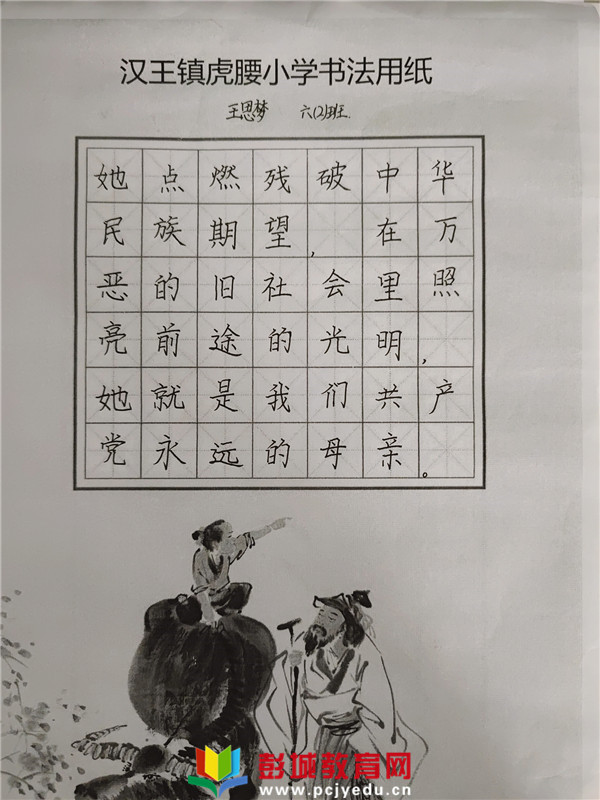 汉王镇虎腰小学书法用纸
王思梦 六(2)班
她点燃残破中华
民族期望,在万
恶的旧社会里照
亮前途的光明,
她就是我们共产
党永远的母亲。
彭城教育网
www.pcjyedu.cn